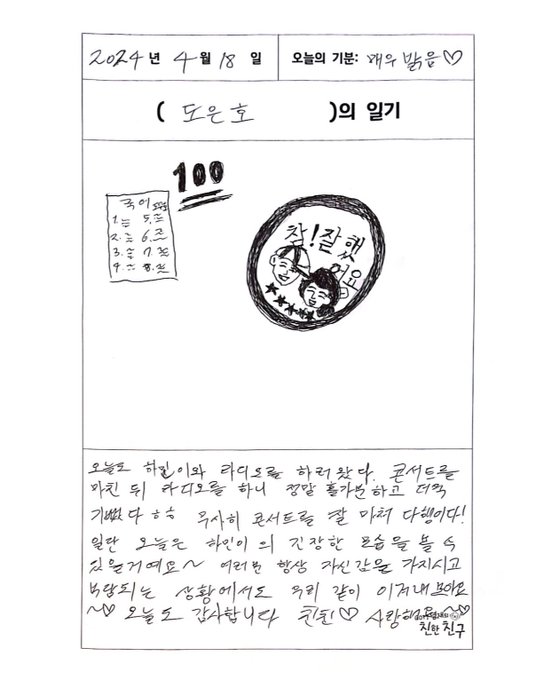 2024년 4월 18일 오늘의 기분: 매우 밝음♡
( 도은호 )의 일기
100
국어
1. 5.
2. 6.
3. 7.
4. 8.
참!잘했
어요
오늘도 하민이와 라디오를 하러왔다. 콘서트를
마친 뒤 라디오를 하니 정말 홀가분하고 더욱
기뻤다 ㅎㅎ 무사히 콘서트를 잘 마쳐 다행이다!
일단 오늘은 하민이의 긴장한 모습을 볼 수
있을거예요~ 여러분 항상 자신감을 가지시고
부담되는 상황에서도 우리 같이 이겨내 보아요
~♡ 오늘도 감사합니다 친친♡ 사랑해요~♡
친한친구